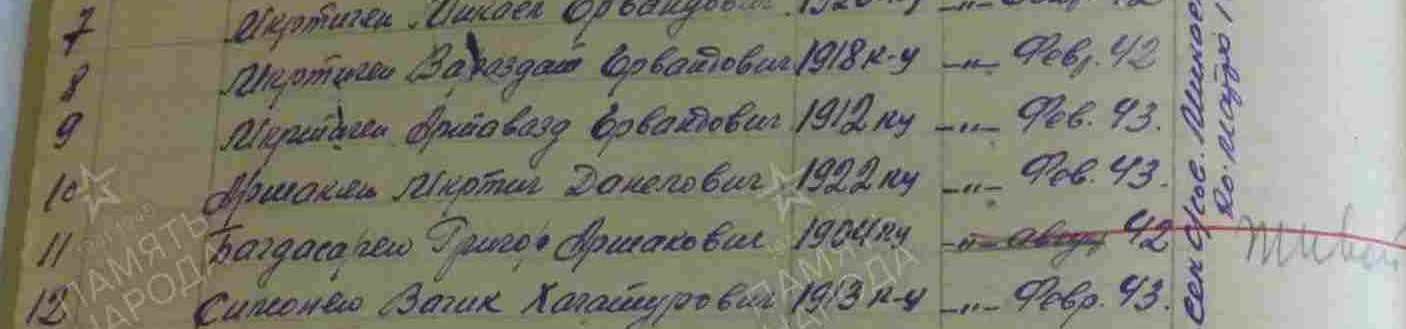 7 Мкртичен Микаел Ервандович
8 Мкртичен Вараздат Ервандович 1918 н-у -"- Фев. 42
9 Мкртичен Артавазд Ервандович 1912 ну -"- Фев. 43.
10 Аршакен Мкртич Данелович 1922 ну -"- Фев. 43.
11 Багдасарен Григор Аршакович 1904 ну -"- август 42 живой
12 Симонен Вагик Хачатурович 1913 н-у -"- Февр. 43.
ПАМЯТЬ НАРОДА
ПАМЯТЬ НАРОДА